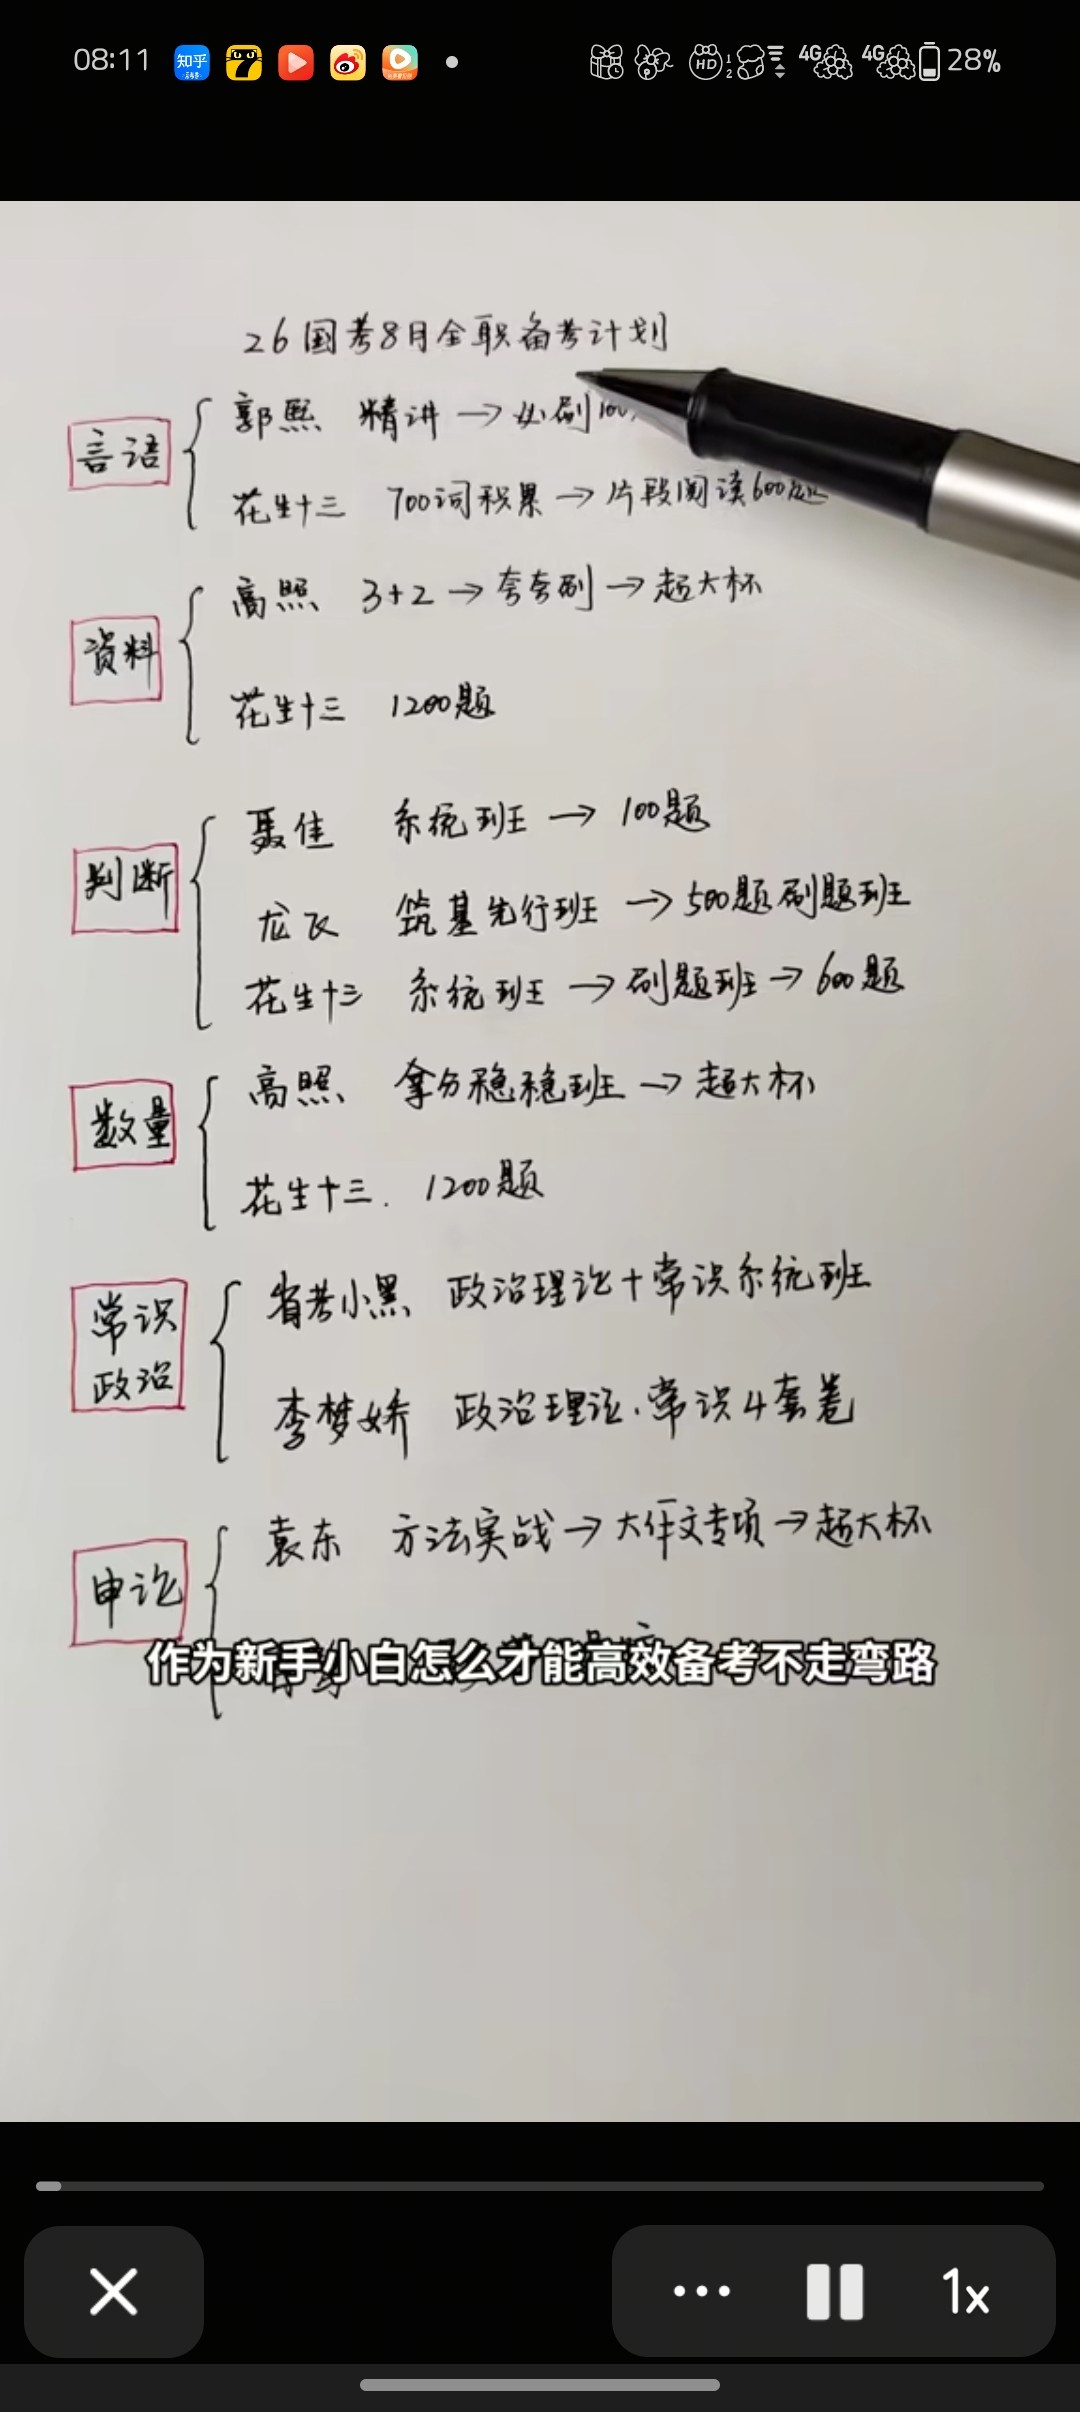 08:11
知乎
HD 1 2 4G 4G 28%
26国考8月全职备考计划
言语
郭熙 精讲 → 必刷100
花生十三 700词积累 → 片段阅读600题
资料
高照 3+2 → 夸夸刷 → 超大杯
花生十三 1200题
判断
聂佳 系统班 → 100题
龙飞 筑基先行班 → 500题刷题班
花生十三 系统班 → 刷题班 → 600题
数量
高照 拿分稳稳班 → 超大杯
花生十三. 1200题
常识
政治
省考小黑 政治理论+常识系统班
李梦娇 政治理论、常识4套卷
申论
袁东 方法实战 → 大作文专项 → 超大杯
作为新手小白怎么才能高效备考不走弯路
1x